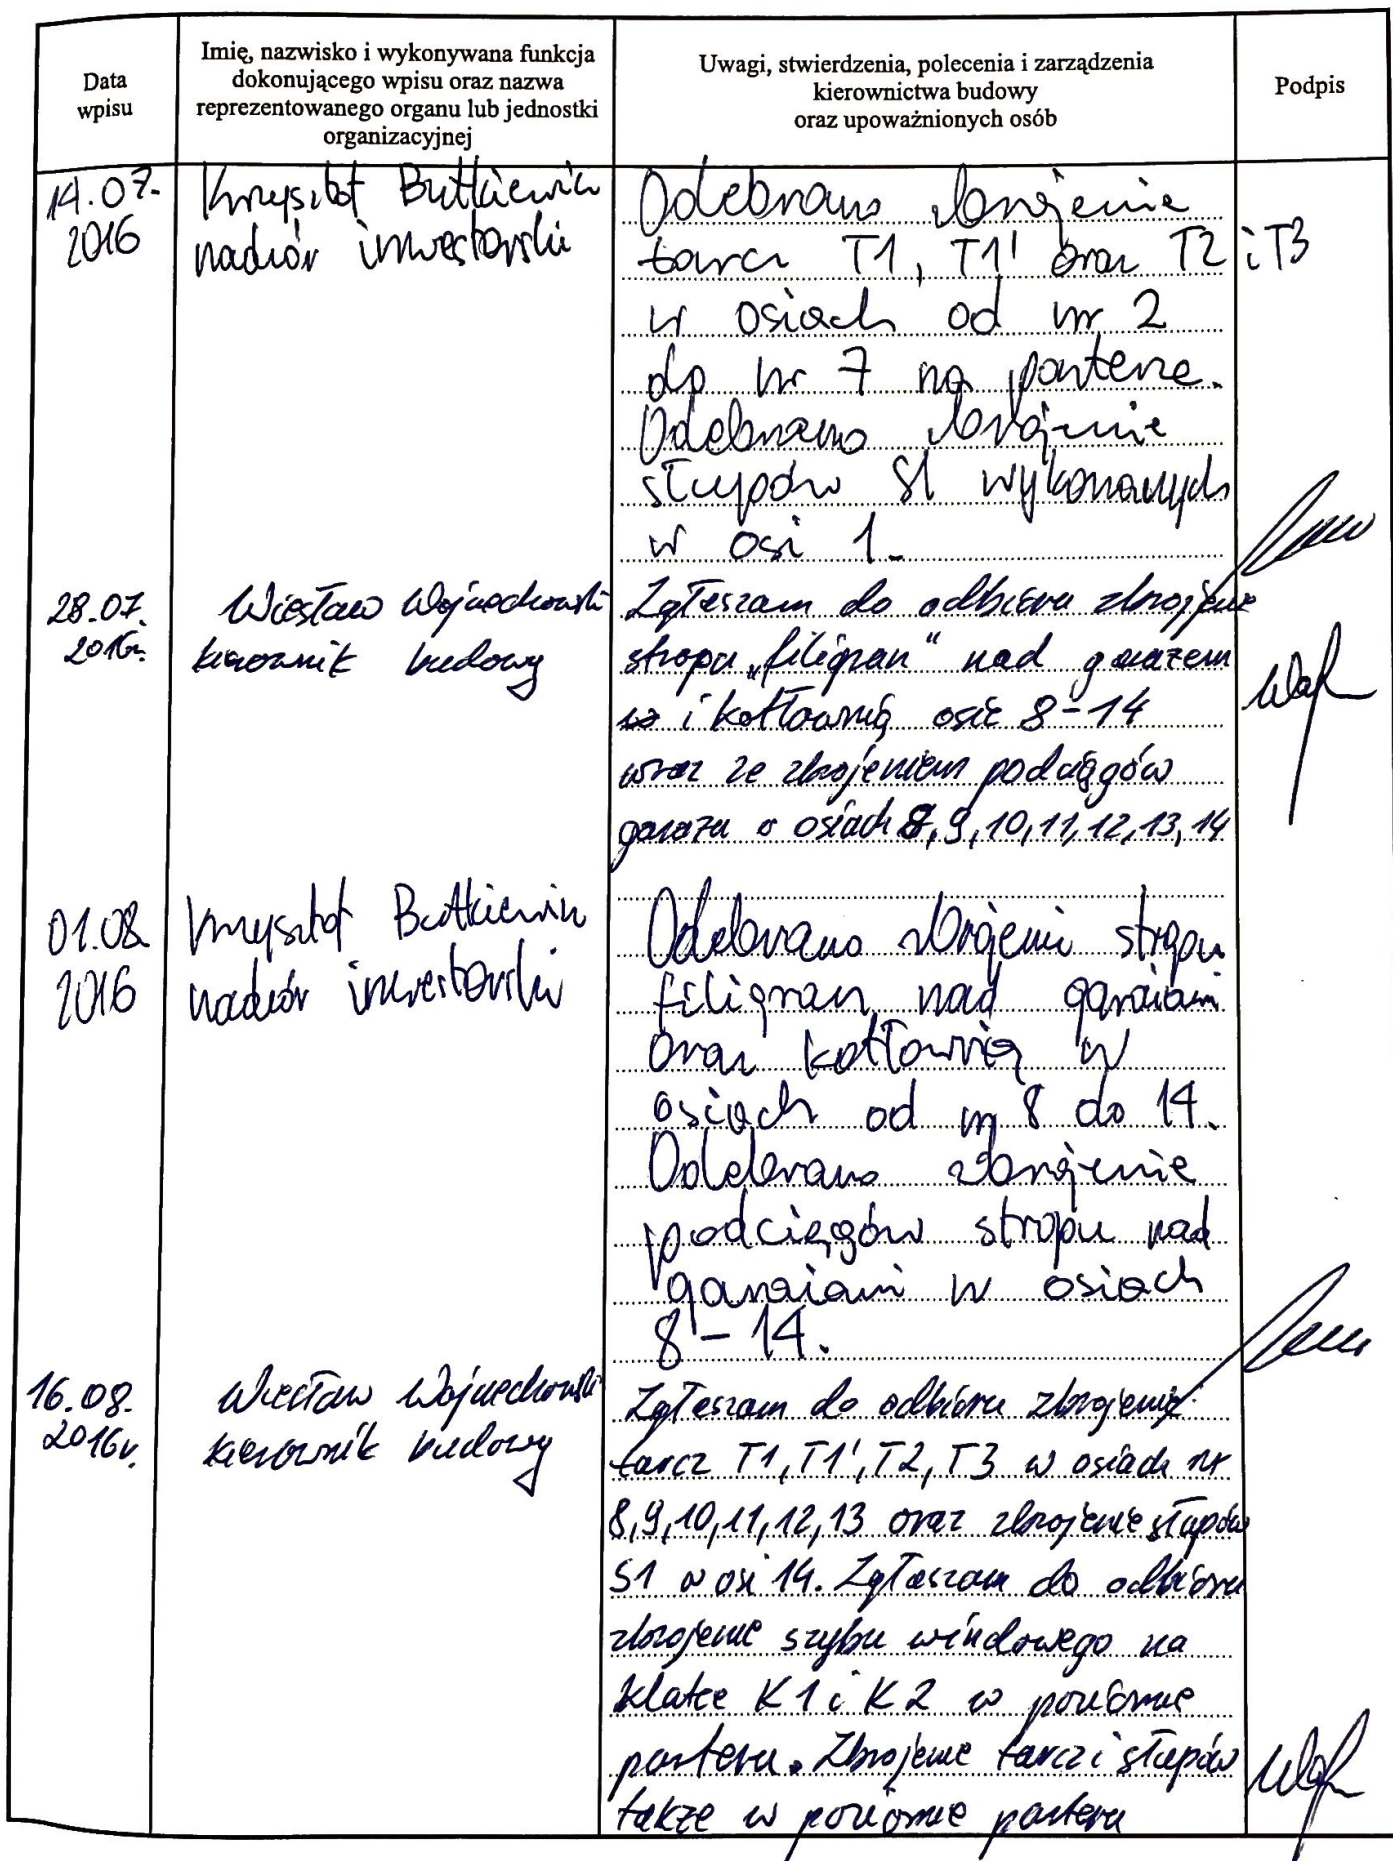 Data
wpisu
Imię, nazwisko i wykonywana funkcja
dokonującego wpisu oraz nazwa
reprezentowanego organu lub jednostki
organizacyjnej
Uwagi, stwierdzenia, polecenia i zarządzenia
kierownictwa budowy
oraz upoważnionych osób
Podpis
14.07.
2016
Krzysztof Butkiewicz
nadzór inwestorski
Odebrano zbrojenie
tarcz T1, T1' oraz T2 i T3
w osiach od nr 2
do nr 7 na parterze.
Odebrano zbrojenie
słupów S1 wykonanych
w osi 1.
28.07.
2016r.
Wiesław Wojciechowski
kierownik budowy
Zgłaszam do odbioru zbrojenie
stropu „filigran" nad garażem
i kotłownią osie 8-14
wraz ze zbrojeniem podciągów
garażu w osiach 8, 9, 10, 11, 12, 13, 14
01.08.
2016
Krzysztof Butkiewicz
nadzór inwestorski
Odebrano zbrojenie stropu
filigran nad garażami
oraz kotłownią w
osiach od nr 8 do 14.
Odebrano zbrojenie
podciągów stropu nad
garażami w osiach
8-14.
16.08.
2016r.
Wiesław Wojciechowski
kierownik budowy
Zgłaszam do odbioru zbrojenie
tarcz T1, T1', T2, T3 w osiach nr
8, 9, 10, 11, 12, 13 oraz zbrojenie słupów
S1 w osi 14. Zgłaszam do odbioru
zbrojenie szybu windowego na
klatce K1 i K2 w poziomie
parteru. Zbrojenie tarcz i słupów
także w poziomie parteru